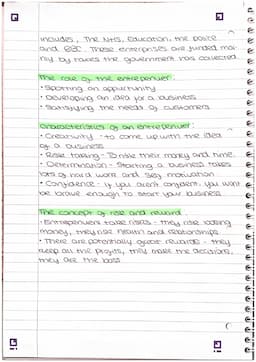 includes, The NHS, Education, the police
and BBC. These enterprises are funded mai-
nly by taxes the government has collected.
The role of the entrepenuer:
• Spotting an oppurtunity
• Developing an idea for a business
• Satisfying the needs of customers
Characteristics of an entrepenuer:
• Creativity - to come up with the idea
of a business
• Risk taking - To risk their money and time.
• Determination - Starting a business takes
lots of hard work and self motivation
• Confidence - if you aren't confident you wont
be brave enough to start your business
The concept of risk and reward
• Entrepenuers take risks - they risk losing
money, they risk health and relationships.
• There are potentially great rewards - they
keep all the profits, they make the decisions,
they are the boss